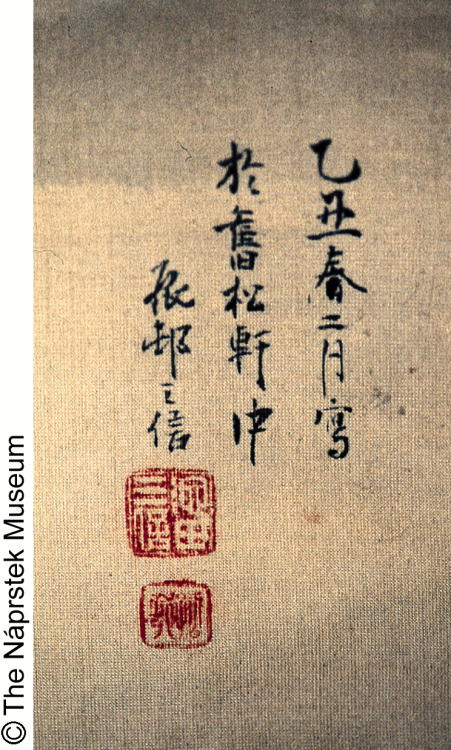 乙丑春二月寫
於舊松軒中
邨之信
© The Náprstek Museum